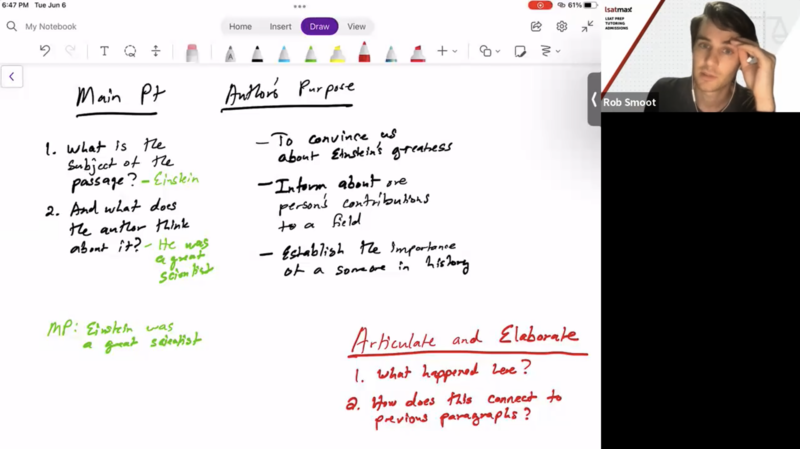 6:47 PM Tue Jun 6
61%
My Notebook
Home Insert Draw View
lsatmax
LSAT PREP
TUTORING
ADMISSIONS
Rob Smoot
Main Pt
1. What is the
subject of the
passage? - Einstein
2. And what does
the author think
about it? - He was
a great
scientist
MP: Einstein was
a great scientist
Author's Purpose
- To convince us
about Einstein's greatness
- Inform about one
person's contributions
to a field
- Establish the importance
of a someone in history
Articulate and Elaborate
1. What happened here?
2. How does this connect to
previous paragraphs?